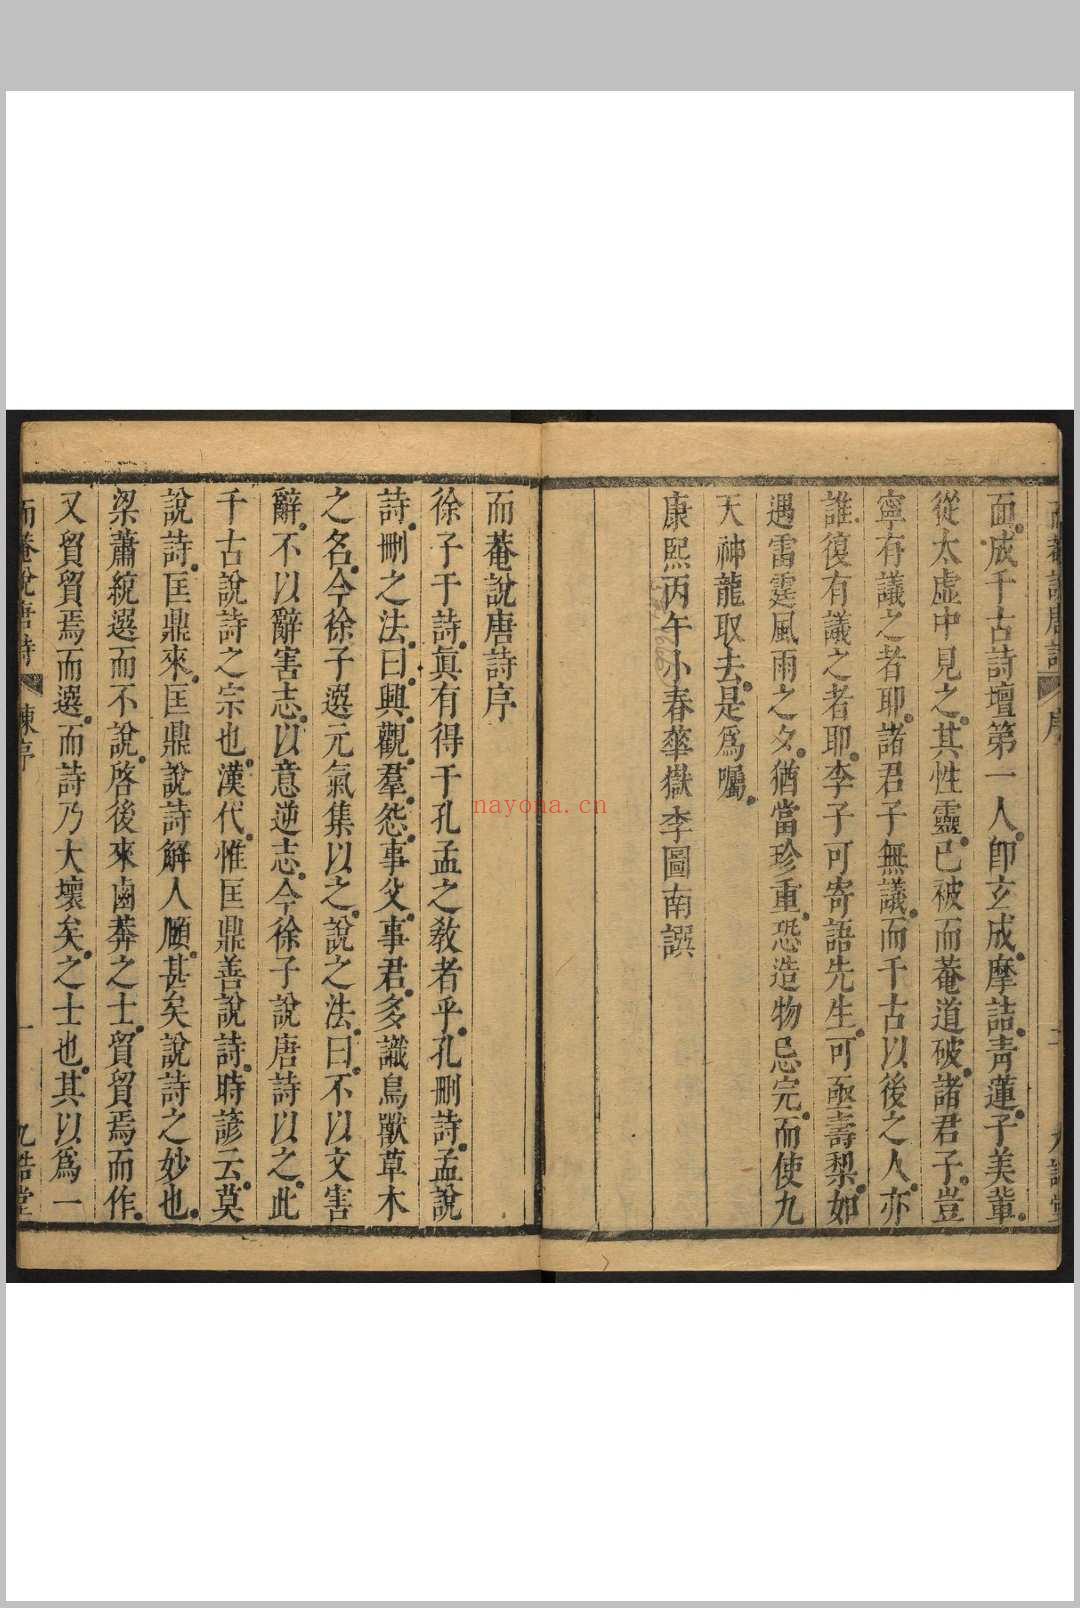 而菴說唐詩 序
面。成千古詩壇第一人。卽玄成。摩詰。靑蓮。子美輩。
從太虛中見之。其性靈。已被而菴道破。諸君子。豈
寧有議之者耶。諸君子無議。而千古以後之人。亦
誰復有議之者耶。李子可寄語先生。可亟壽梨。如
遇雷霆風雨之夕。猶當珍重。恐造物忌完。而使九
天神龍取去。是爲囑。
康熙丙午小春華嶽李圖南譔
而菴說唐詩序
徐子于詩。眞有得于孔孟之敎者乎。孔刪詩。孟說
詩。刪之法。曰。興。觀。羣。怨。事父。事君。多識鳥獸草木
之名。今徐子選元氣集以之。說之法。曰。不以文害
辭。不以辭害志。以意逆志。今徐子說唐詩以之。此
千古說詩之宗也。漢代。惟匡鼎善說詩。時諺云。莫
說詩。匡鼎來。匡鼎說詩解人頤。甚矣說詩之妙也。
梁蕭統選而不說。啓後來鹵莽之士。貿貿焉而作。
又貿貿焉而選。而詩乃大壞矣。之士也。其以爲一
而菴說唐詩 陳序 一 九誥堂
nayona.cn